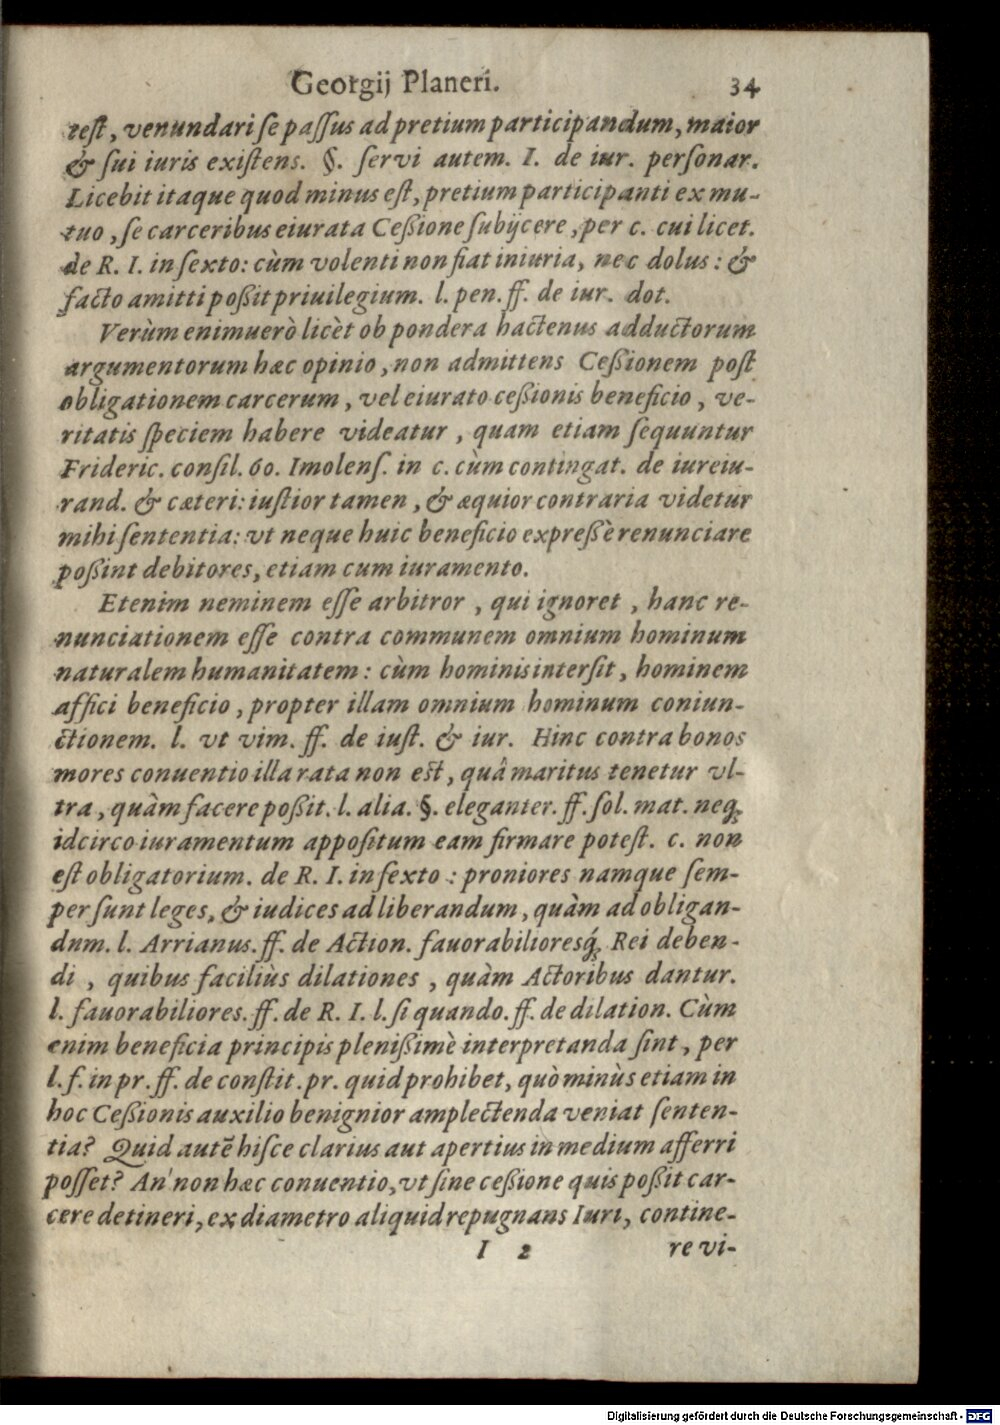 Georgij Planeri. 34
test, venundari se passus ad pretium participandum, maior
& sui iuris existens. §. servi autem. I. de iur. personar.
Licebit itaque quod minus est, pretium participanti ex mu-
tuo, se carceribus eiurata Ceßione subijcere, per c. cui licet.
de R. I. in sexto: cùm volenti non fiat iniuria, nec dolus: &
facto amitti poßit priuilegium. l. pen. ff. de iur. dot.
Verùm enimuerò licèt ob pondera hactenus adductorum
argumentorum hæc opinio, non admittens Ceßionem post
obligationem carcerum, vel eiurato ceßionis beneficio, ve-
ritatis speciem habere videatur, quam etiam sequuntur
Frideric. consil. 60. Imolens. in c. cùm contingat. de iureiu-
rand. & cæteri: iustior tamen, & æquior contraria videtur
mihi sententia: vt neque huic beneficio expreßè renunciare
poßint debitores, etiam cum iuramento.
Etenim neminem esse arbitror, qui ignoret, hanc re-
nunciationem esse contra communem omnium hominum
naturalem humanitatem: cùm hominis intersit, hominem
affici beneficio, propter illam omnium hominum coniun-
ctionem. l. vt vim. ff. de iust. & iur. Hinc contra bonos
mores conuentio illa rata non est, quâ maritus tenetur vl-
tra, quàm facere poßit. l. alia. §. eleganter. ff. sol. mat. neq;
idcirco iuramentum appositum eam firmare potest. c. non
est obligatorium. de R. I. in sexto: proniores namque sem-
per sunt leges, & iudices ad liberandum, quàm ad obligan-
dnm. l. Arrianus. ff. de Action. fauorabilioresq́; Rei deben-
di, quibus faciliùs dilationes, quàm Actoribus dantur.
l. fauorabiliores. ff. de R. I. l. si quando. ff. de dilation. Cùm
enim beneficia principis plenißimè interpretanda sint, per
l. f. in pr. ff. de constit. pr. quid prohibet, quò minùs etiam in
hoc Ceßionis auxilio benignior amplectenda veniat senten-
tia? Quid autẽ hisce clarius aut apertius in medium afferri
posset? An' non hæc conuentio, vt sine ceßione quis poßit car-
cere detineri, ex diametro aliquid repugnans Iuri, contine-
I 2 re vi-
Digitalisierung gefördert durch die Deutsche Forschungsgemeinschaft - DFG